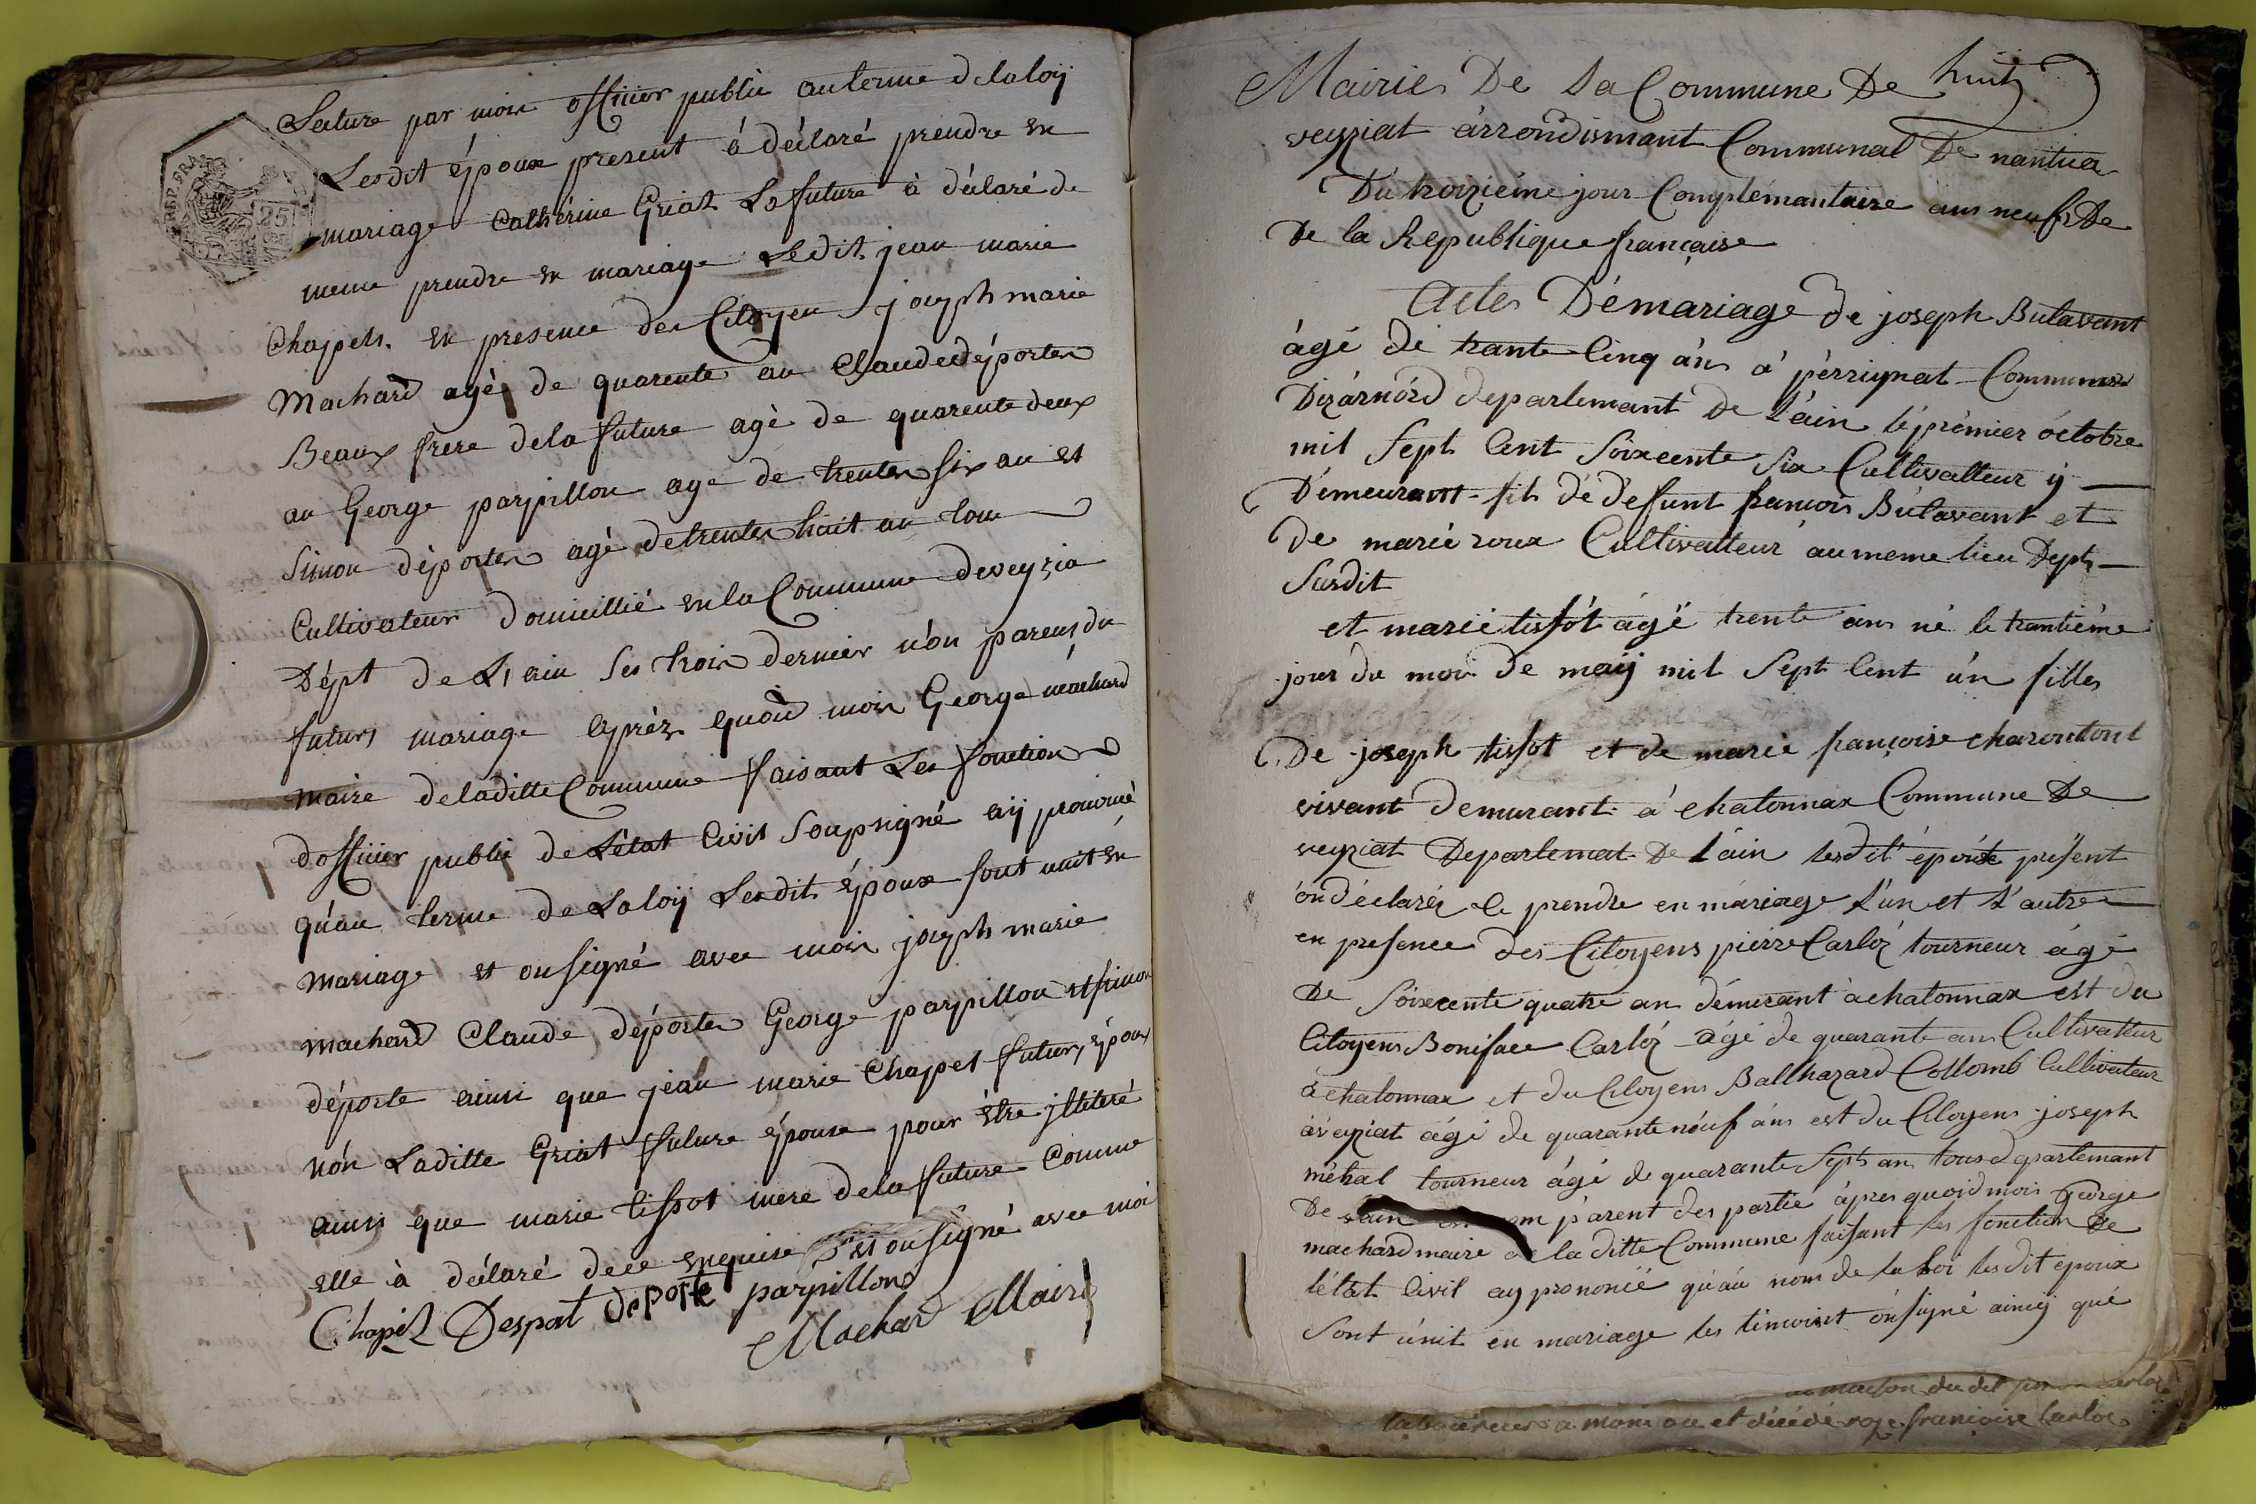 Lecture par moix officier public au terme de la loÿ
Lesdit époux present à déclaré prendre en
mariage Catherine Griat La future à déclaré de
meme prendre en mariage Ledit jean marie
Chappets. en presence des Citoyen joseph marie
Machard agé de quarente an Claude déporter
Beaux frere dela future agé de quarente deux
an George parpillon age de trente six an et
Simon déporter agé de trente huit an tous
Cultivateur domicillié en la Commune deveyzia
Dépt de L'ain les trois dernier nón parens du
futurs mariage Apréz quoÿ moix George machard
maire deladitte Commune faisant Les fonction
dofficier public de Létat Civit Soupsigné aÿ prononcé
qu'au terme de La loÿ Lesdit époux sont unit en
mariage et on signé avec moix joseph marie
machard Claude déporter George parpillon et simon
déporte ainsi que jean marie Chappet futurs époux
nón Laditte Griat future épouse pour être jlleteré
ainsi que marie tissot mere dela future Comme
elle à déclaré de ce enquise et on signé avec moi
Chapel Desport deporte parpillon
Machard Maire
REP. FRA.
25
Mairie De La Commune De huit
veyziat arrondismant Communal De nantua
Du troizième jour Complémantaire an neuf De
De la Republique française
Acte Démariage De joseph Butavant
âgé de trante Cinq áns à pérrignat Commune
Dizarnórd departemant De L'áin lé prémier óctobre
mil Sept Cent Soixcente Six Cultivatteur ÿ
Démeurant fils dé défunt francois Bútavant et
De marié roux Cultivatteur au meme lieu Dept
Susdit
et marié tissót ágé trente ans né le trantiéme
jour du mois De maÿ mil Sept Cent ún filles
De joseph tissot et de marié françoise charontont
vivant demurant á chatonnax Commune De
veyziat Departemat De L'áin lesdit époúx présent
ón déclaréz Ce prendre en máriage L'un et L'autre
en presence des Citoyens pierre Carlóz tourneur âgé
De Soixcente quatre an démurant à chatonnax est du
Citoyens Boniface Carlóz âgé de quarante ans Cultivatteur
à chatonnax et du Citoyens Balthazard Collomb Cultivateur
àveyziat âgé de quarante nóuf áns est du Citoyens joseph
méhal tourneur ágé de quarante Sept an tous departemant
De Lain párent des partie ápres quoid mois george
machard maire De la ditte Commune faisant les fonction De
létat Civil ay prononcé qu'áu nom de la Loi lesdit epoux
Sont únit en mariage les témoint ónsigné ainÿ qué
maison du dit
a et décédé françoise Carloz